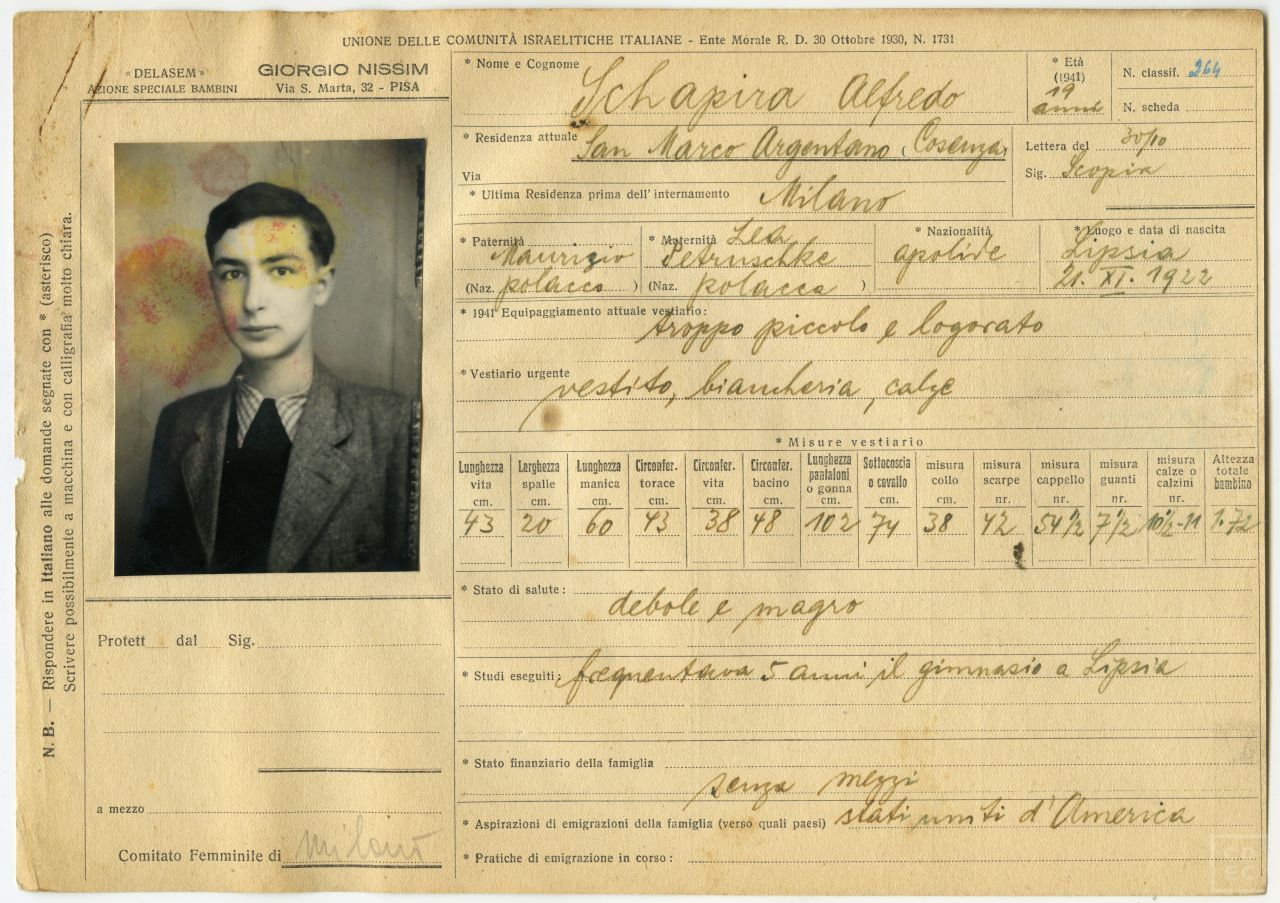 UNIONE DELLE COMUNITÀ ISRAELITICHE ITALIANE - Ente Morale R. D. 30 Ottobre 1930, N. 1731
« DELASEM »
AZIONE SPECIALE BAMBINI
GIORGIO NISSIM
Via S. Marta, 32 - PISA
* Nome e Cognome Schapira Alfredo
* Età (1941) 19 anni
N. classif. 264
N. scheda
* Residenza attuale San Marco Argentano (Cosenza)
Via
Lettera del 30/10
Sig. Scopia
* Ultima Residenza prima dell'internamento Milano
* Paternità Maurizio
(Naz. polacco)
* Maternità Lea Petruschke
(Naz. polacca)
* Nazionalità apolide
* Luogo e data di nascita Lipsia
21. XI. 1922
* 1941 Equipaggiamento attuale vestiario: troppo piccolo e logorato
* Vestiario urgente vestito, biancheria, calze
* Misure vestiario
Lunghezza vita cm. 43
Larghezza spalle cm. 20
Lunghezza manica cm. 60
Circonfer. torace cm. 43
Circonfer. vita cm. 38
Circonfer. bacino cm. 48
Lunghezza pantaloni o gonna cm. 102
Sottocoscia o cavallo cm. 74
misura collo cm. 38
misura scarpe nr. 42
misura cappello nr. 54 1/2
misura guanti nr. 7 1/2
misura calze o calzini nr. 10 1/2-11
Altezza totale bambino 1.72
* Stato di salute: debole e magro
* Studi eseguiti: frequentava 5 anni il gimnasio a Lipsia
* Stato finanziario della famiglia senza mezzi
* Aspirazioni di emigrazioni della famiglia (verso quali paesi) stati uniti d'America
* Pratiche di emigrazione in corso:
Protett dal Sig.
a mezzo
Comitato Femminile di Milano
N. B. — Rispondere in Italiano alle domande segnate con * (asterisco)
Scrivere possibilmente a macchina e con calligrafia molto chiara.
CD
EC